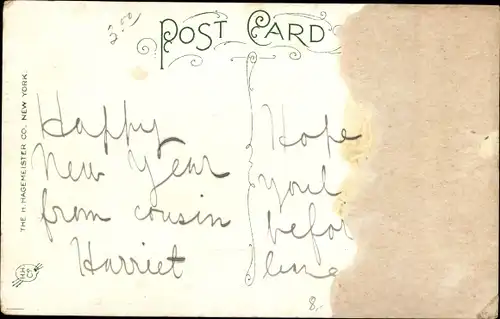 2.00
POST CARD
THE H. HAGEMEISTER CO. NEW YORK.
Happy
New Year
from cousin
Harriet
Hope
youl
befor
line
H.H.
Co.
8,-